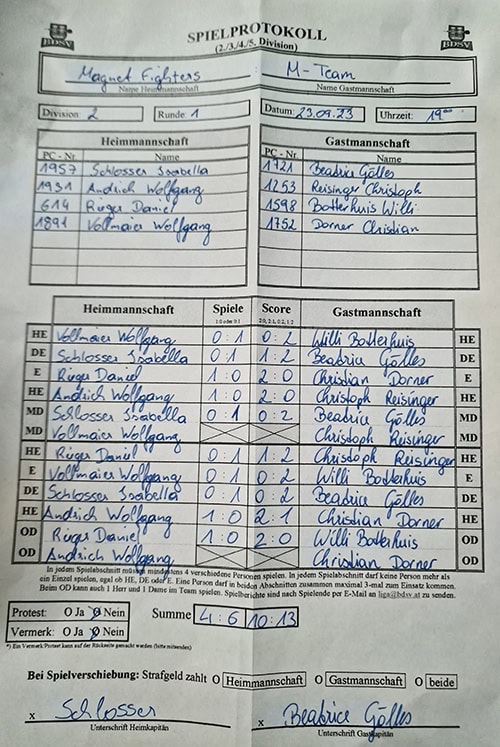 SPIELPROTOKOLL
(2./3./4./5. Division)
BDSV
BDSV
Magnet Fighters : M-Team
Name Heimmannschaft Name Gastmannschaft
Division: 2 Runde: 1 Datum: 23.09.23 Uhrzeit: 19⁰⁰
Heimmannschaft Gastmannschaft
PC - Nr. Name PC - Nr. Name
1957 Schlosser Isabella 1721 Beatrice Gölles
1931 Andrich Wolfgang 1253 Reisinger Christoph
614 Rieger Daniel 1598 Botterhuis Willi
1891 Vollmaier Wolfgang 1752 Dorner Christian
Heimmannschaft Spiele Score Gastmannschaft
1:0 oder 0:1 2:0, 2:1, 0:2, 1:2
HE Vollmaier Wolfgang 0:1 0:2 Willi Botterhuis HE
DE Schlosser Isabella 0:1 1:2 Beatrice Gölles DE
E Rieger Daniel 1:0 2:0 Christian Dorner E
HE Andrich Wolfgang 1:0 2:0 Christoph Reisinger HE
MD Schlosser Isabella 0:1 0:2 Beatrice Gölles MD
MD Vollmaier Wolfgang Christoph Reisinger MD
HE Rieger Daniel 0:1 1:2 Christoph Reisinger HE
E Vollmaier Wolfgang 0:1 0:2 Willi Botterhuis E
DE Schlosser Isabella 0:1 0:2 Beatrice Gölles DE
HE Andrich Wolfgang 1:0 2:1 Christian Dorner HE
OD Rieger Daniel 1:0 2:0 Willi Botterhuis OD
OD Andrich Wolfgang Christian Dorner OD
In jedem Spielabschnitt müssen mindestens 4 verschiedene Personen spielen. In jedem Spielabschnitt darf keine Person mehr als
ein Einzel spielen, egal ob HE, DE oder E. Eine Person darf in beiden Abschnitten zusammen maximal 3-mal zum Einsatz kommen.
Beim OD kann auch 1 Herr und 1 Dame im Team spielen. Spielberichte sind nach Spielende per E-Mail an liga@bdsv.at zu senden.
Protest: O Ja O Nein Summe 4:6 10:13
Vermerk: O Ja O Nein
*) Ein Vermerk/Protest kann auf der Rückseite gemacht werden (bitte mitsenden)
Bei Spielverschiebung: Strafgeld zahlt O Heimmannschaft O Gastmannschaft O beide
x Schlosser x Beatrice Gölles
Unterschrift Heimkapitän Unterschrift Gastkapitän